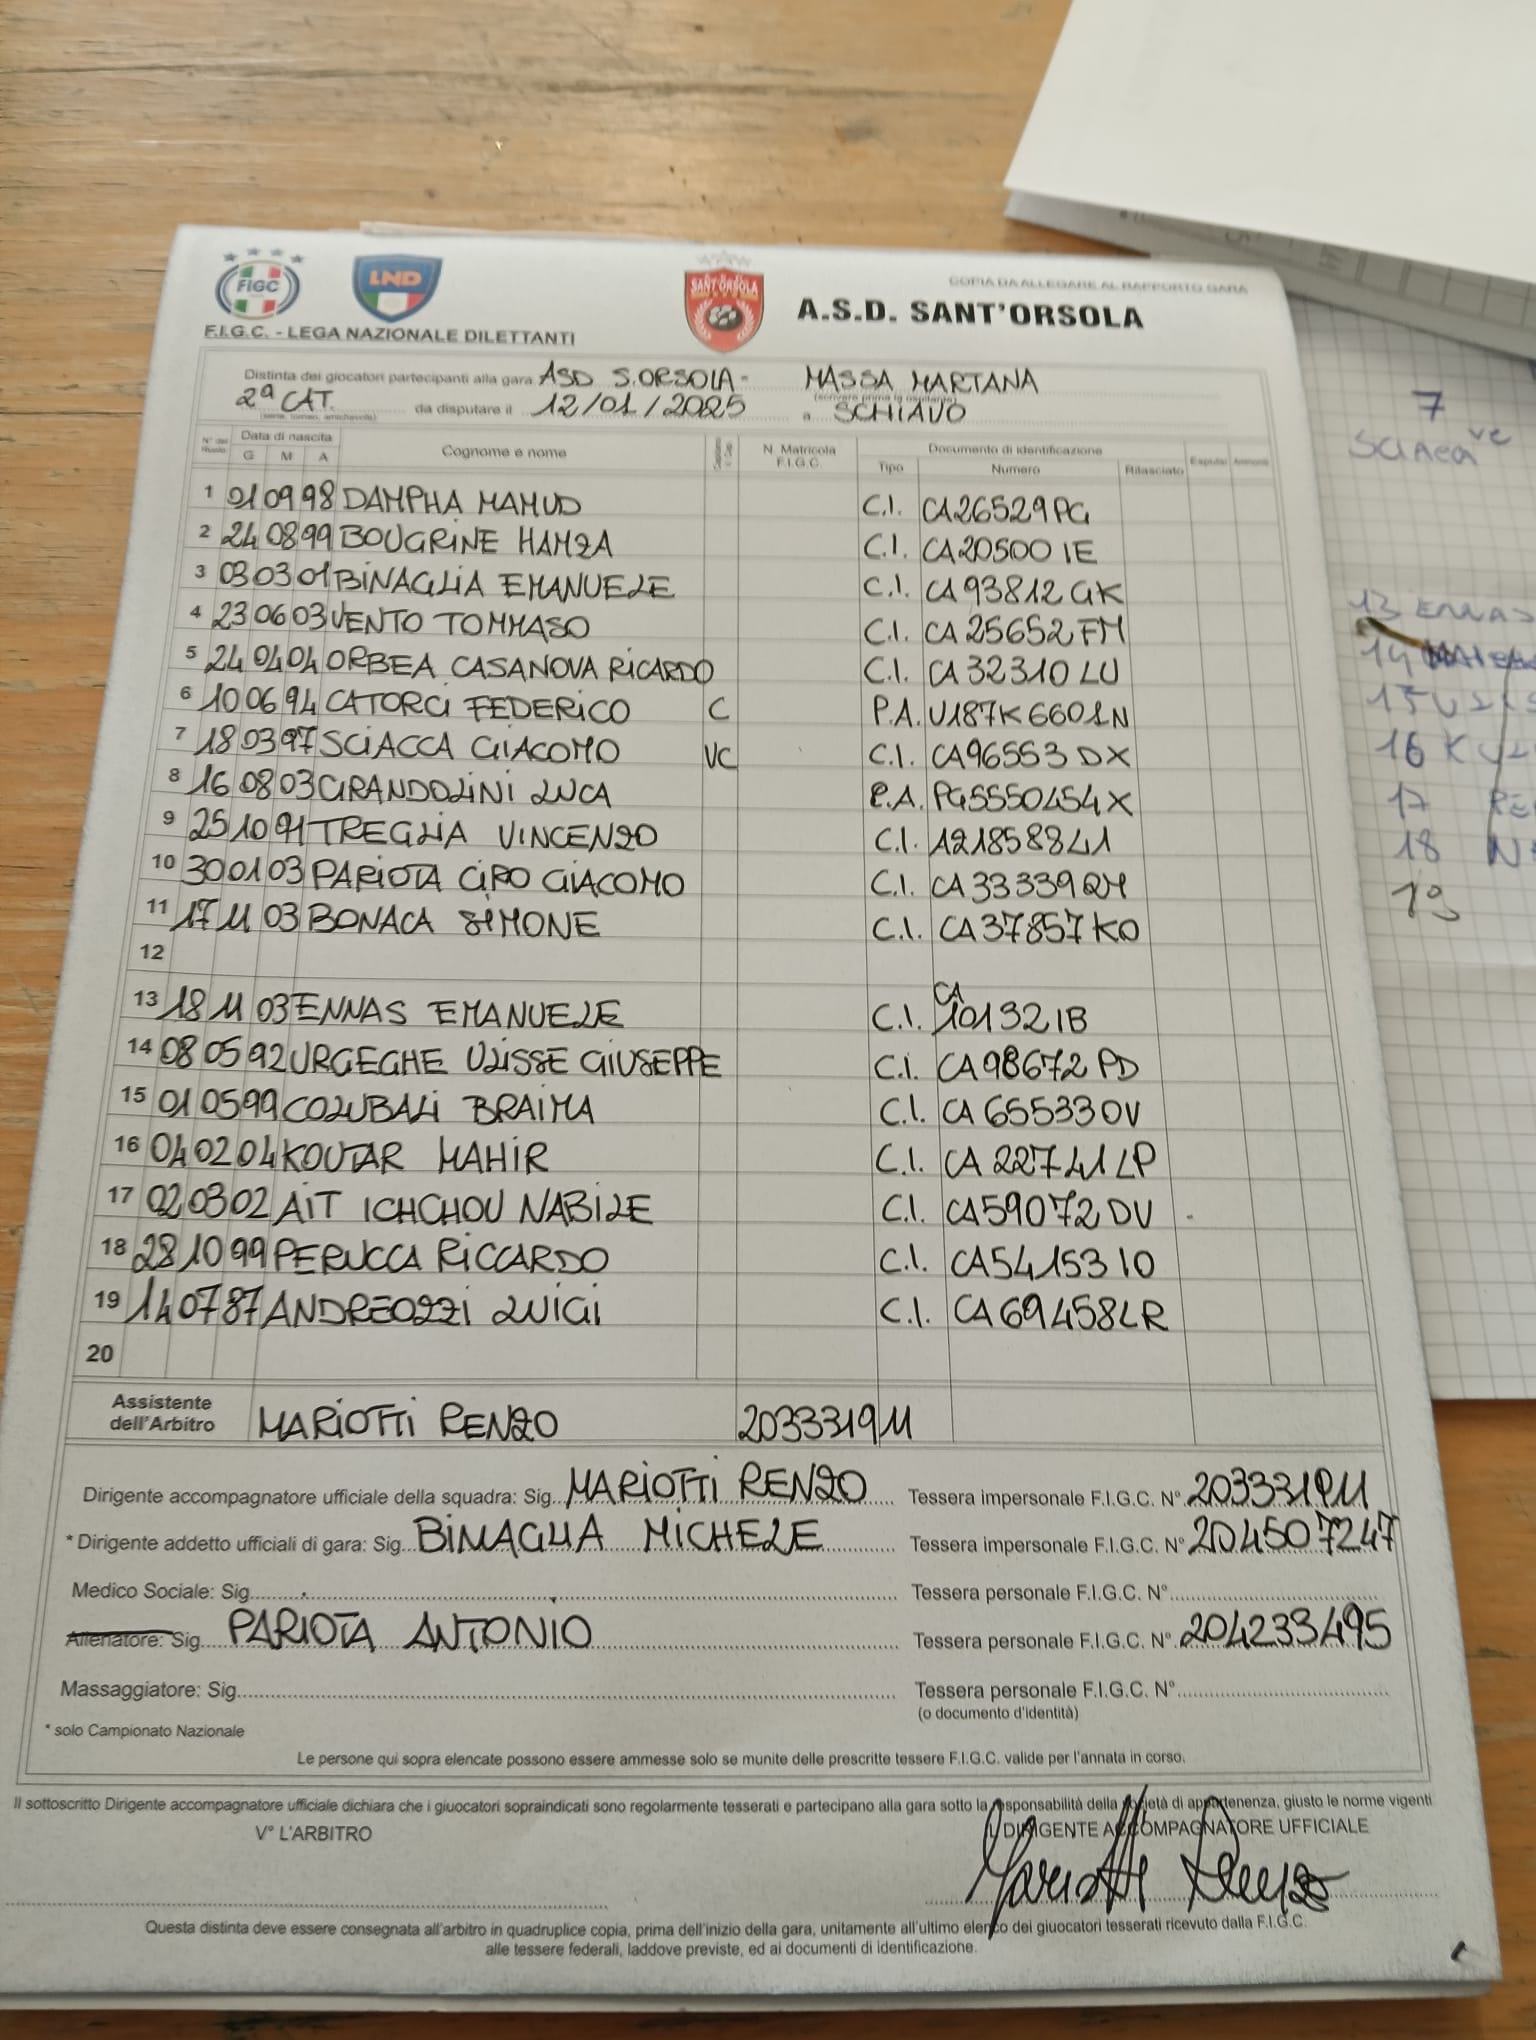 COPIA DA ALLEGARE AL RAPPORTO GARA
FIGC
LND
SANT'ORSOLA
A.S.D. SANT'ORSOLA
F.I.G.C. - LEGA NAZIONALE DILETTANTI
Distinta dei giocatori partecipanti alla gara ASD S.ORSOLA - MASSA MARTANA
2ª CAT. da disputare il 12/01/2025 a SCHIAVO
N° del Ruolo Data di nascita Cognome e nome N. Matricola F.I.G.C. Documento di identificazione Espulsi Ammoniti
G M A Tipo Numero Rilasciato
1 01 09 98 DAMPHA MAMUD C.I. CA26529PG
2 24 08 99 BOUGRINE HAMZA C.I. CA20500IE
3 03 03 01 BINAGLIA EMANUELE C.I. CA93812GK
4 23 06 03 VENTO TOMMASO C.I. CA25652FM
5 24 04 04 ORBEA CASANOVA RICARDO C.I. CA32310LU
6 10 06 94 CATORCI FEDERICO C P.A. U187K6601N
7 18 03 97 SCIACCA GIACOMO VC C.I. CA96553DX
8 16 08 03 GRANDOLINI LUCA P.A. PG5550454X
9 25 10 91 TREGLIA VINCENZO C.I. A21858841
10 30 01 03 PARIOTA CIRO GIACOMO C.I. CA33339QM
11 17 11 03 BONACA SIMONE C.I. CA37857KO
12
13 18 11 03 ENNAS EMANUELE C.I. CA10132IB
14 08 05 92 URGEGHE ULISSE GIUSEPPE C.I. CA98672PD
15 01 05 99 COLUBALI BRAIMA C.I. CA65533OV
16 04 02 04 KOUTAR MAHIR C.I. CA22741LP
17 02 03 02 AIT ICHCHOU NABILE C.I. CA59072DU
18 28 10 99 PERUCCA RICCARDO C.I. CA54153IO
19 14 07 87 ANDREOZZI LUIGI C.I. CA69458LR
20
Assistente dell'Arbitro MARIOTTI RENZO 203331911
Dirigente accompagnatore ufficiale della squadra: Sig. MARIOTTI RENZO Tessera impersonale F.I.G.C. N° 203331911
* Dirigente addetto ufficiali di gara: Sig. BINAGLIA MICHELE Tessera impersonale F.I.G.C. N° 204507247
Medico Sociale: Sig. Tessera personale F.I.G.C. N°
Allenatore: Sig. PARIOTA ANTONIO Tessera personale F.I.G.C. N° 204233495
Massaggiatore: Sig. Tessera personale F.I.G.C. N°
(o documento d'identità)
* solo Campionato Nazionale
Le persone qui sopra elencate possono essere ammesse solo se munite delle prescritte tessere F.I.G.C. valide per l'annata in corso.
Il sottoscritto Dirigente accompagnatore ufficiale dichiara che i giuocatori sopraindicati sono regolarmente tesserati e partecipano alla gara sotto la responsabilità della società di appartenenza, giusto le norme vigenti
V° L'ARBITRO IL DIRIGENTE ACCOMPAGNATORE UFFICIALE
Mariotti Renzo
Questa distinta deve essere consegnata all'arbitro in quadruplice copia, prima dell'inizio della gara, unitamente all'ultimo elenco dei giuocatori tesserati ricevuto dalla F.I.G.C.
alle tessere federali, laddove previste, ed ai documenti di identificazione.
7
vc
13 ENNAS
14
15
16
17
18
19